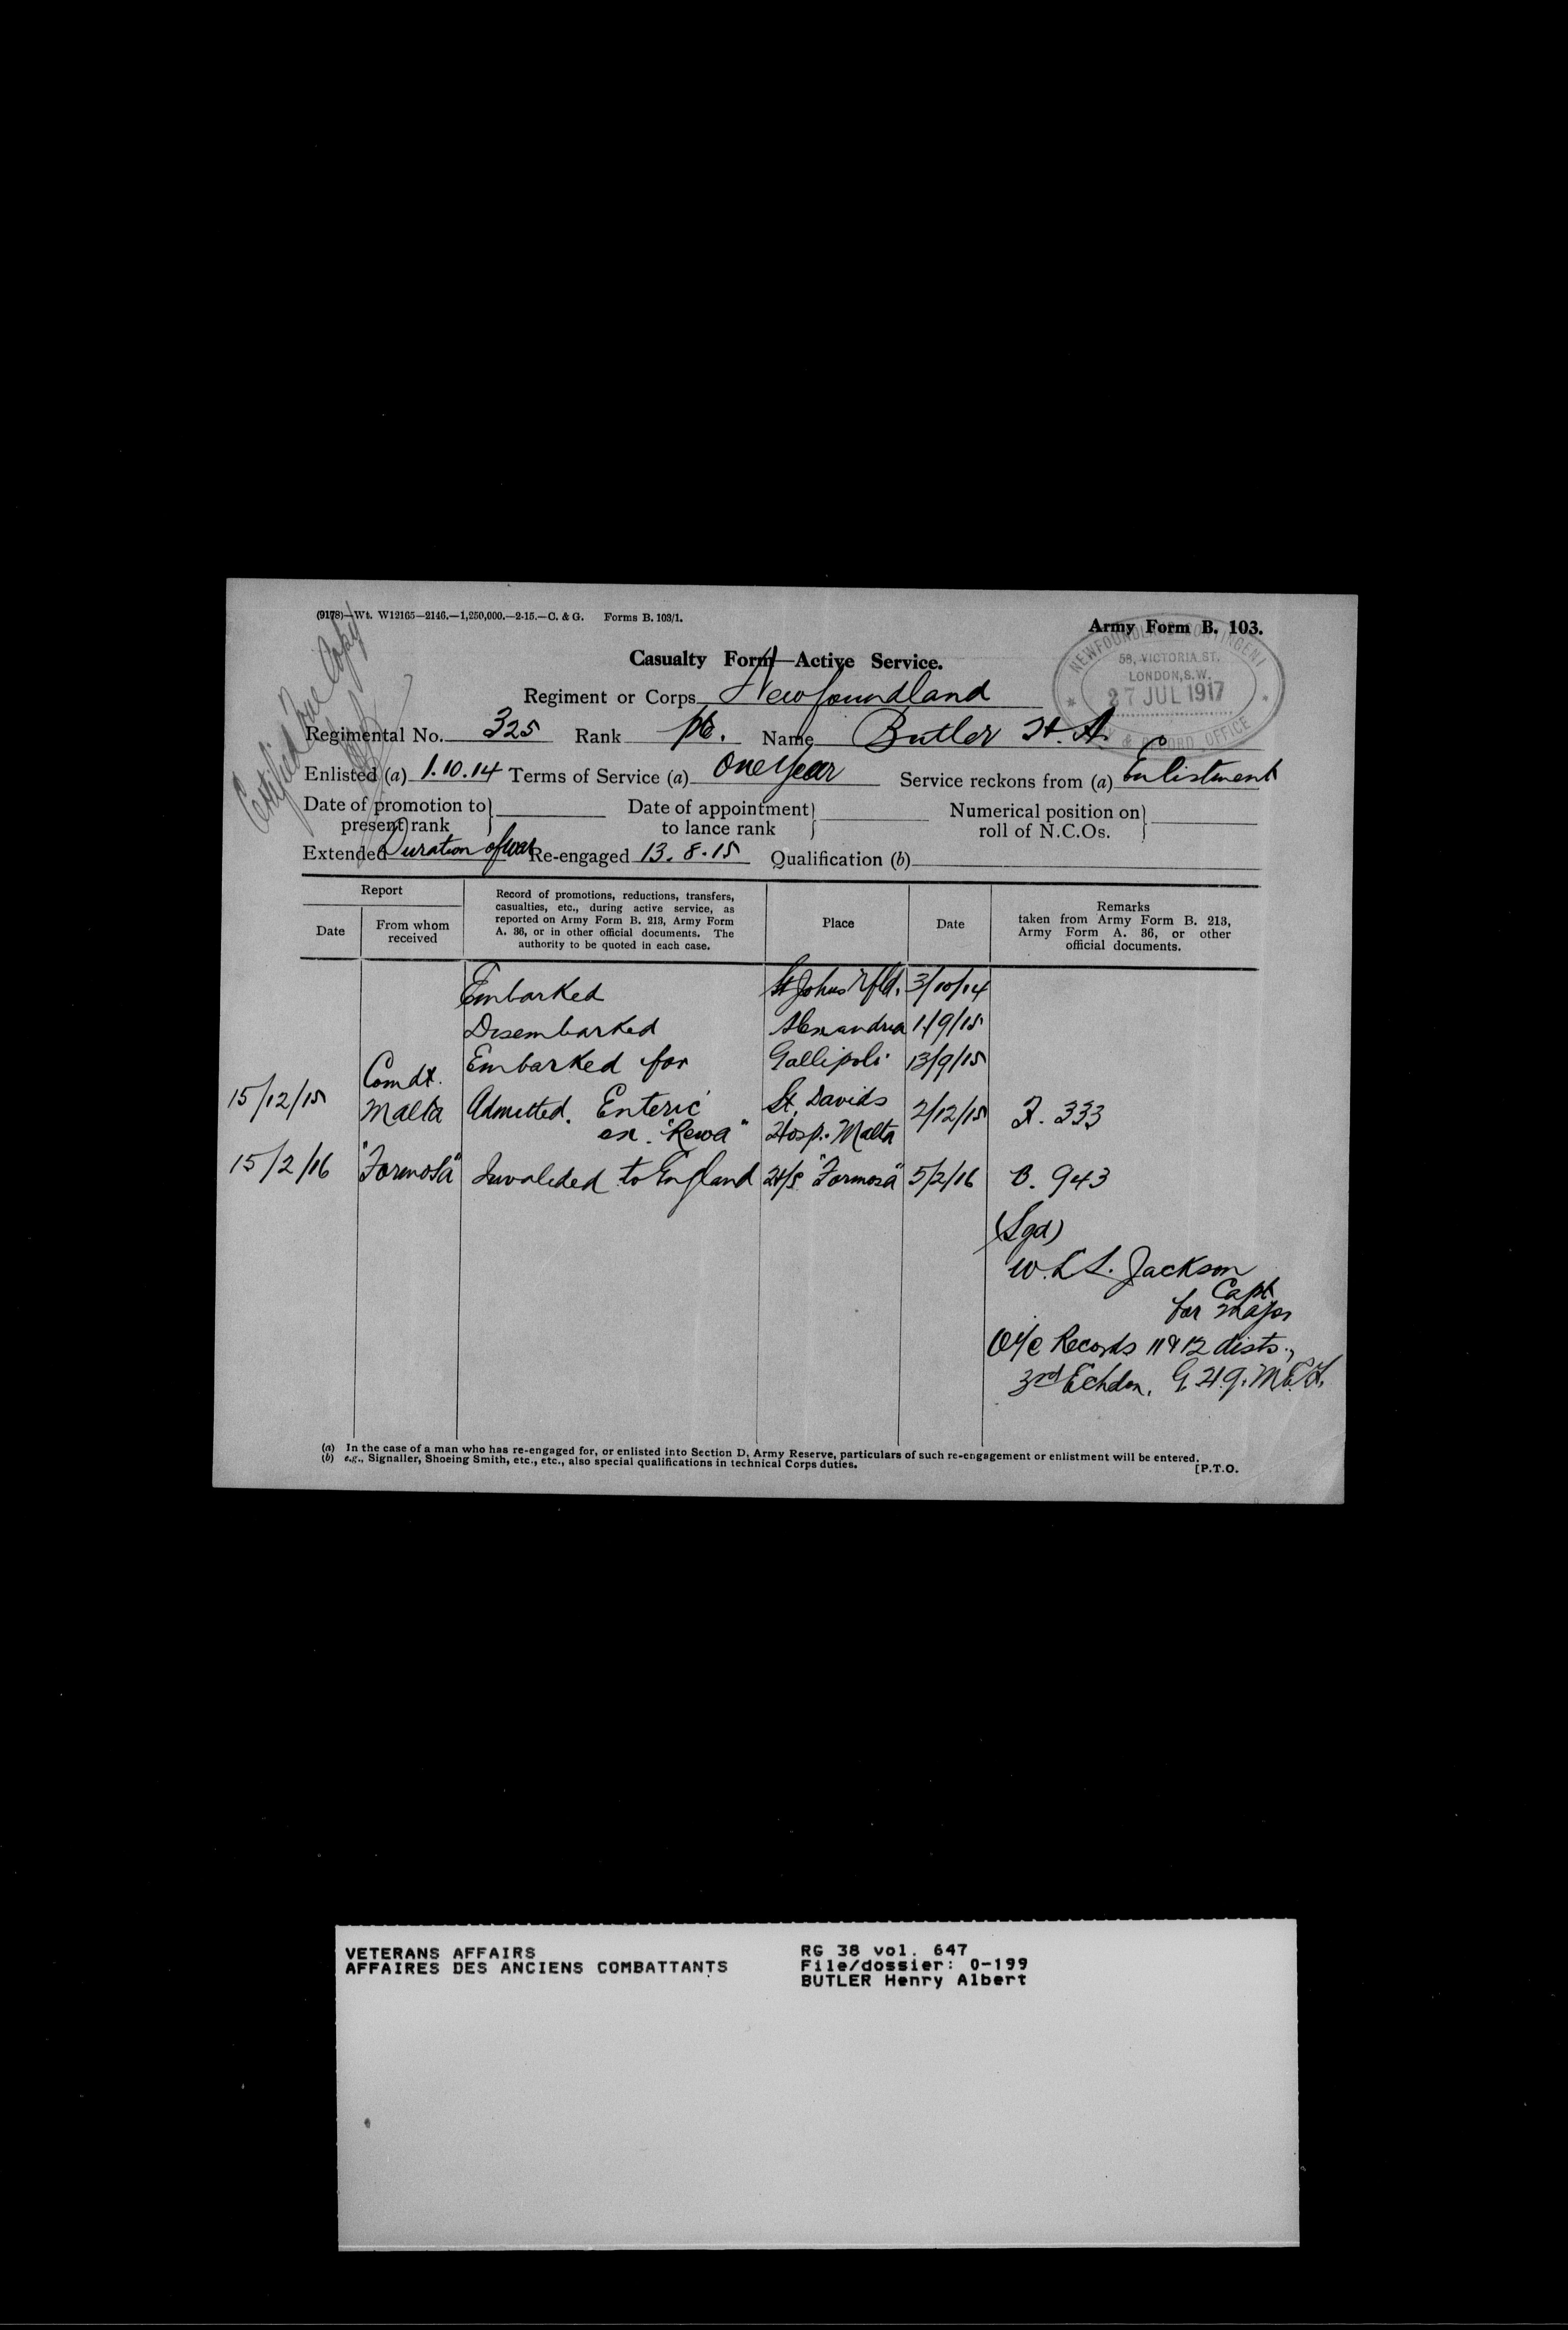 (9178)—Wt. W12165—2146.—1,250,000.—2-15.—C. & G. Forms B. 103/1.
Army Form B. 103.
Certified True Copy
NEWFOUNDLAND CONTINGENT
58, VICTORIA ST.
LONDON, S.W.
27 JUL 1917
& RECORD OFFICE
Casualty Form—Active Service.
Regiment or Corps Newfoundland
Regimental No. 325 Rank Pte. Name Butler H. A.
Enlisted (a) 1.10.14 Terms of Service (a) One Year Service reckons from (a) Enlistment
Date of promotion to present rank Date of appointment to lance rank Numerical position on roll of N.C.Os.
Extended Duration of War Re-engaged 13.8.15 Qualification (b)
Report
Date
From whom received
Record of promotions, reductions, transfers, casualties, etc., during active service, as reported on Army Form B. 213, Army Form A. 36, or in other official documents. The authority to be quoted in each case.
Place
Date
Remarks
taken from Army Form B. 213, Army Form A. 36, or other official documents.
Embarked St Johns Nfld. 3/10/14
Disembarked Alexandria 1/9/15
Embarked for Gallipoli 13/9/15
15/12/15 Comdt. Malta Admitted. Enteric ex. "Rewa" St. Davids Hosp. Malta 2/12/15 F. 333
15/2/16 "Formosa" Invalided to England H/S "Formosa" 5/2/16 B. 943
(Sgd)
W. L. Jackson
Capt
for Major
O i/c Records 11 & 12 dists.,
3rd Echelon, G.H.Q. M.E.F.
(a) In the case of a man who has re-engaged for, or enlisted into Section D, Army Reserve, particulars of such re-engagement or enlistment will be entered.
(b) e.g., Signaller, Shoeing Smith, etc., etc., also special qualifications in technical Corps duties.
[P.T.O.
VETERANS AFFAIRS
AFFAIRES DES ANCIENS COMBATTANTS
RG 38 vol. 647
File/dossier: 0-199
BUTLER Henry Albert